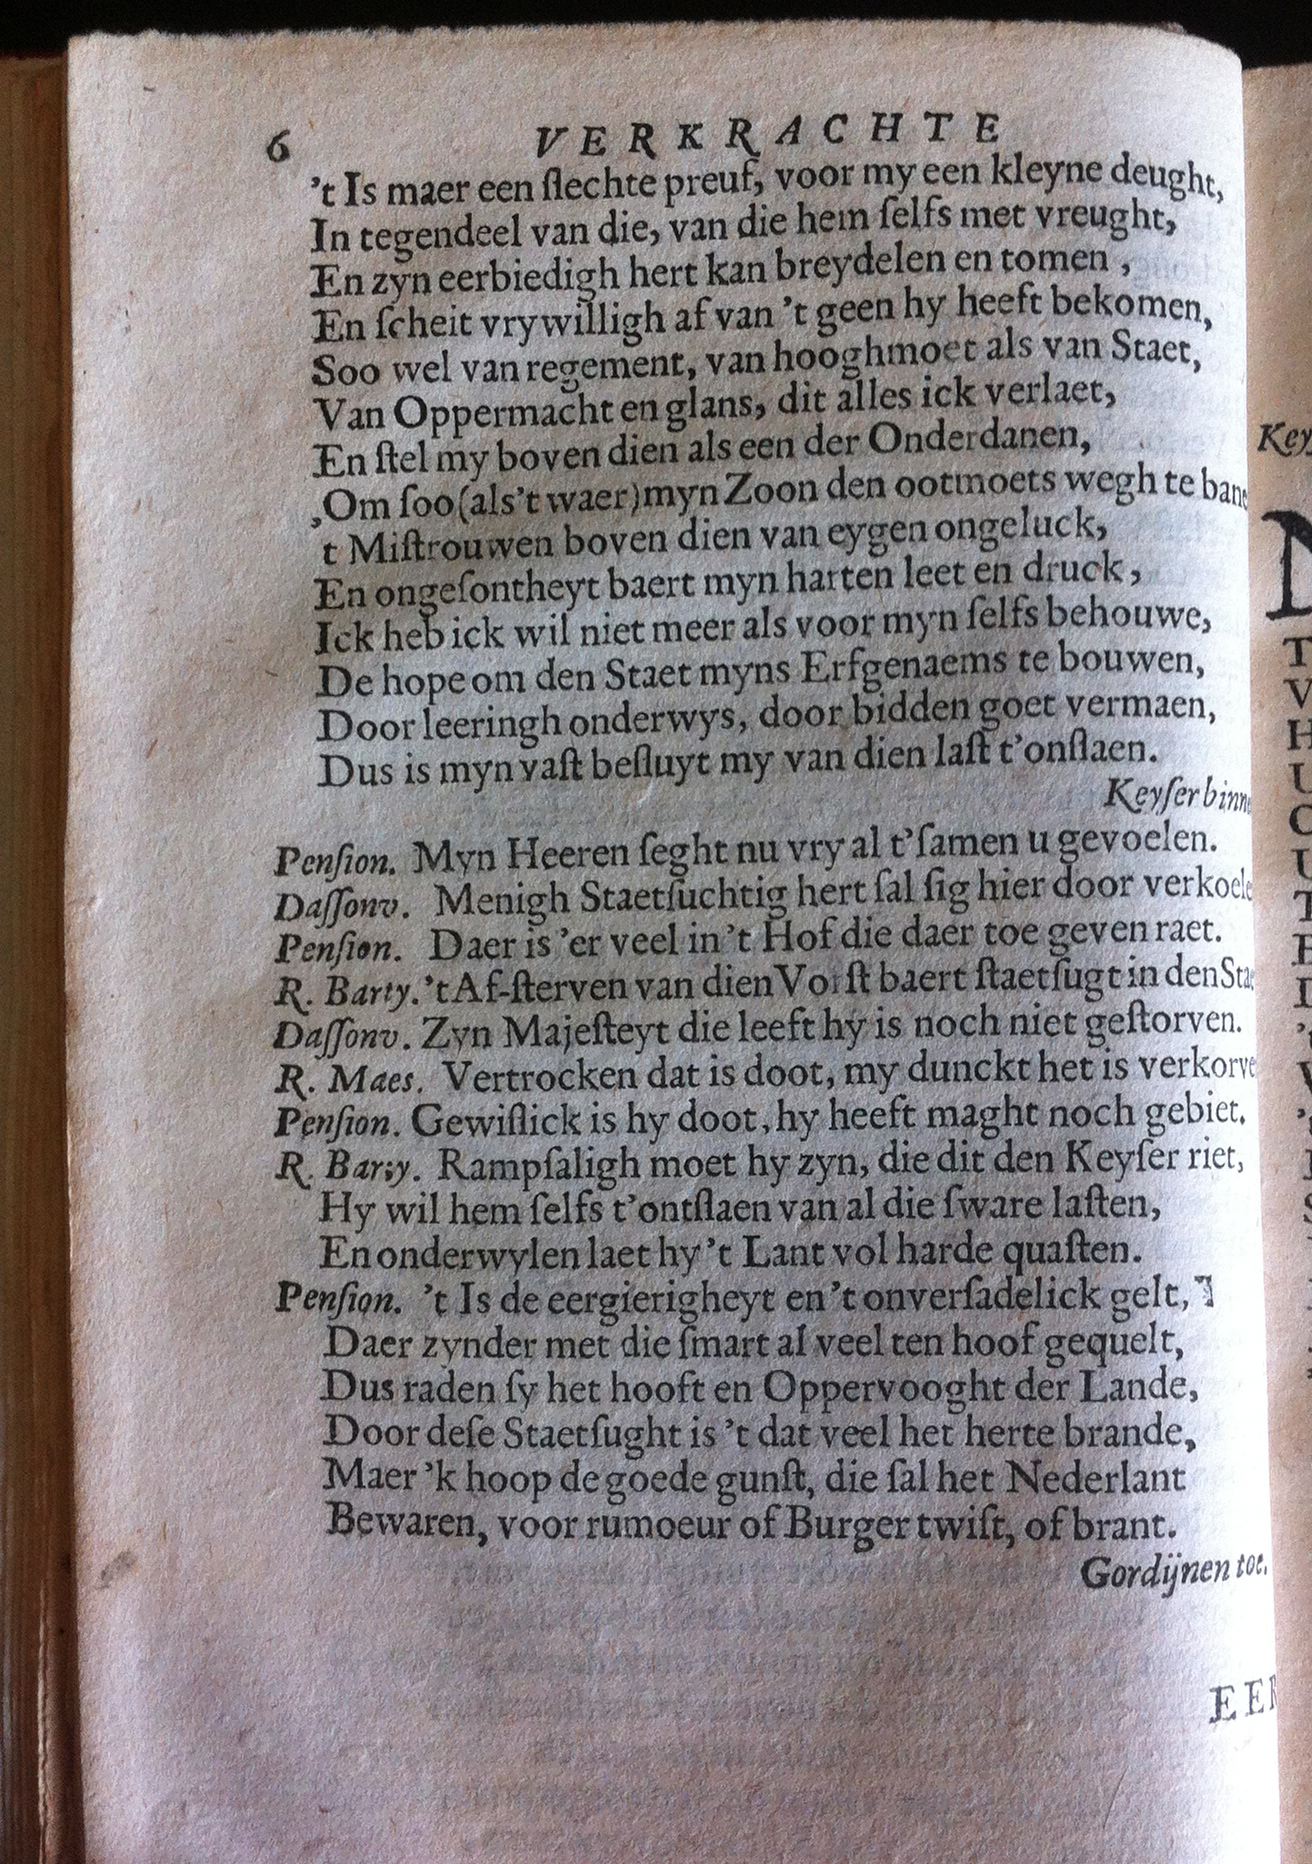 6 VERKRACHTE
't Is maer een ſlechte preuf, voor my een kleyne deught,
In tegendeel van die, van die hem ſelfs met vreught,
En zyn eerbiedigh hert kan breydelen en tomen ,
En ſcheit vrywilligh af van 't geen hy heeft bekomen,
Soo wel van regement, van hooghmoet als van Staet,
Van Oppermacht en glans, dit alles ick verlaet,
En ſtel my boven dien als een der Onderdanen,
,Om ſoo (als 't waer) myn Zoon den ootmoets wegh te bane
t Miſtrouwen boven dien van eygen ongeluck,
En ongeſontheyt baert myn harten leet en druck,
Ick heb ick wil niet meer als voor myn ſelfs behouwe,
De hope om den Staet myns Erfgenaems te bouwen,
Door leeringh onderwys, door bidden goet vermaen,
Dus is myn vaſt beſluyt my van dien laſt t'onſlaen.
Keyſer binne
Penſion. Myn Heeren ſeght nu vry al t'ſamen u gevoelen.
Daſſonv. Menigh Staetſuchtig hert ſal ſig hier door verkoele
Penſion. Daer is 'er veel in 't Hof die daer toe geven raet.
R. Barty. 't Af-ſterven van dien Vorſt baert ſtaetſugt in den Stae
Daſſonv. Zyn Majeſteyt die leeft hy is noch niet geſtorven.
R. Maes. Vertrocken dat is doot, my dunckt het is verkorve
Penſion. Gewiſlick is hy doot, hy heeft maght noch gebiet.
R. Barty. Rampſaligh moet hy zyn, die dit den Keyſer riet,
Hy wil hem ſelfs t'ontſlaen van al die ſware laſten,
En onderwylen laet hy 't Lant vol harde quaſten.
Penſion. 't Is de eergierigheyt en 't onverſadelick gelt,
Daer zynder met die ſmart al veel ten hoof gequelt,
Dus raden ſy het hooft en Oppervooght der Lande,
Door deſe Staetſught is 't dat veel het herte brande,
Maer 'k hoop de goede gunſt, die ſal het Nederlant
Bewaren, voor rumoeur of Burger twiſt, of brant.
Gordijnen toe.
EER
Key